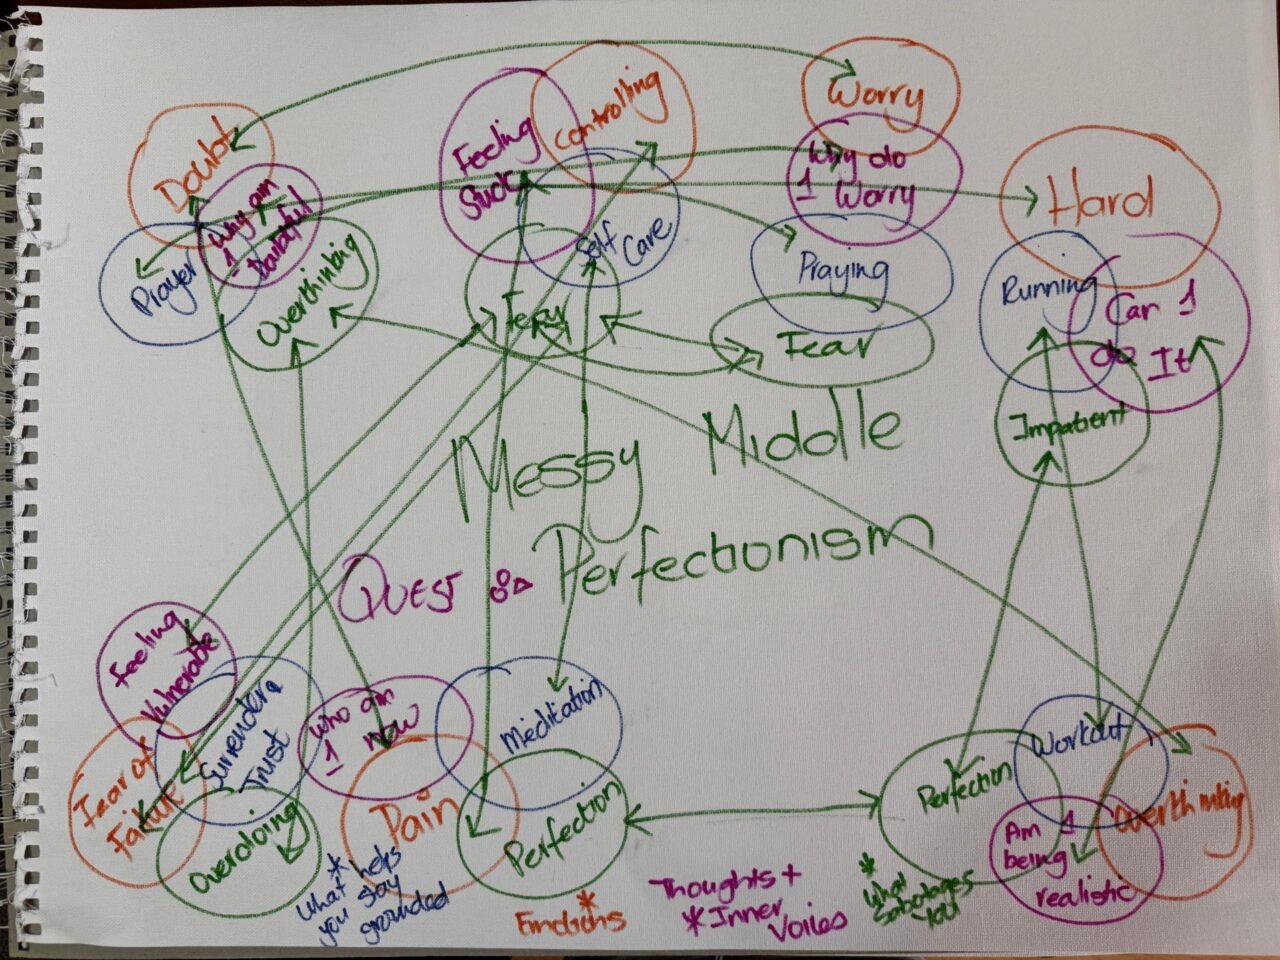 Doubt
Why am
I
Doubtful
Prayer
Overthinking
Feeling
Stuck
Controlling
Self
Care
Fear
Worry
Why do
I Worry
Praying
Fear
Hard
Running
Can I
do It
Impatient
Messy Middle
Quest & Perfectionism
Feeling
Vulnerable
Surrender &
Trust
Fear of
Failure
Overdoing
Who am
I now
Pain
Meditation
Perfection
Perfection
Workout
Overthinking
Am I
being
realistic
*
What helps
you stay
grounded
*
Emotions
Thoughts +
* Inner
Voices
*
What
Sabotages
You